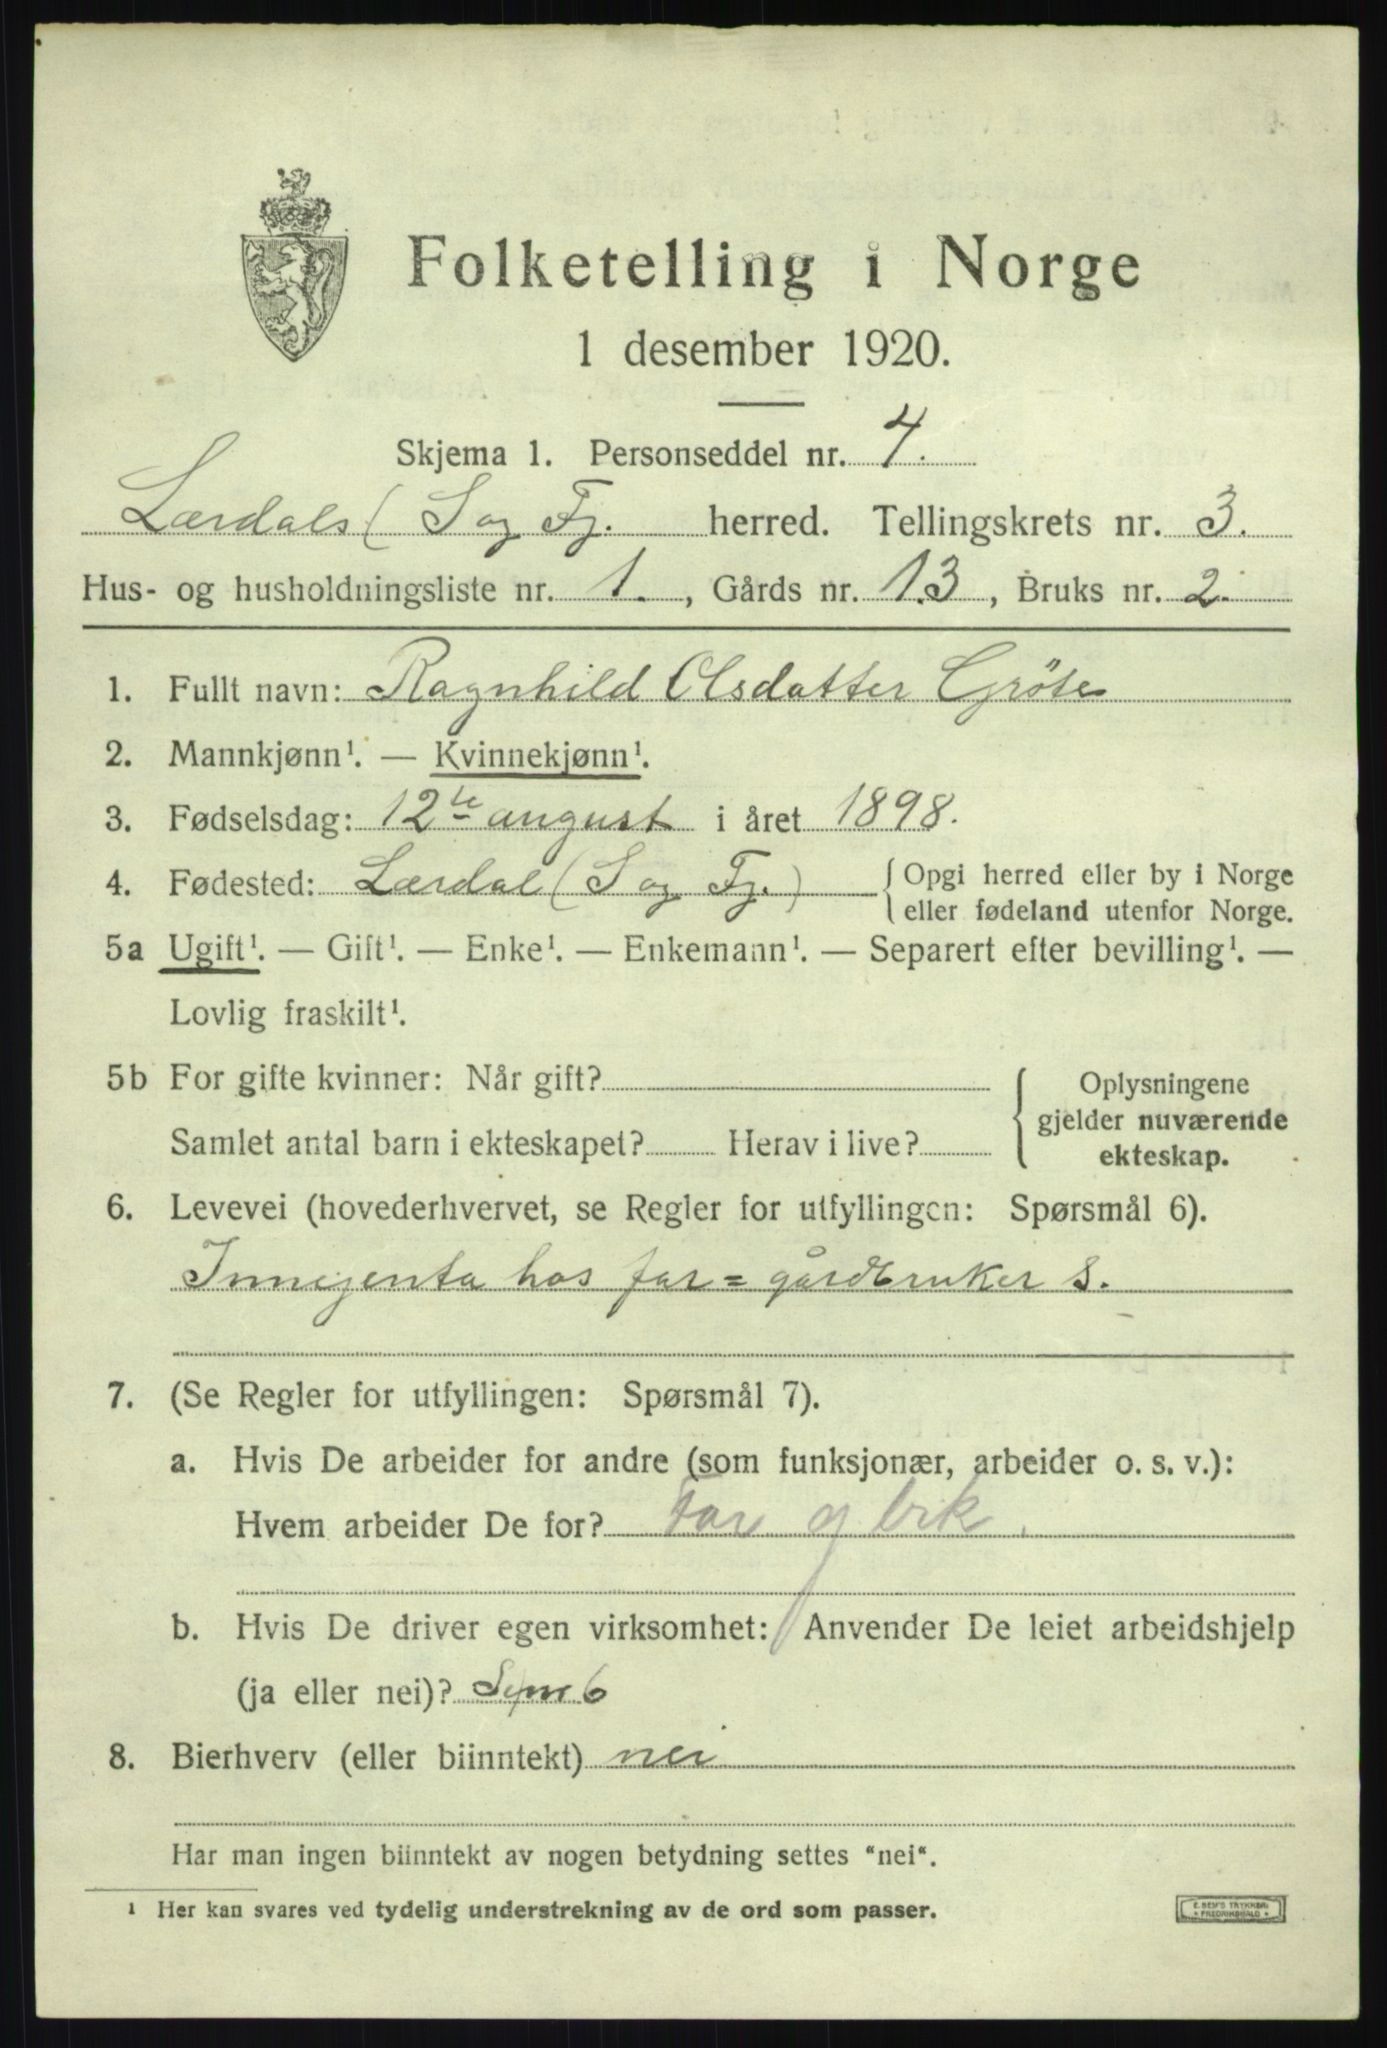 Folketelling i Norge
1 desember 1920.
Skjema 1. Personseddel nr. 4.
Lærdals (S og Fj. herred. Tellingskrets nr. 3.
Hus- og husholdningsliste nr. 1. , Gårds nr. 13 , Bruks nr. 2.
1. Fullt navn: Ragnhild Olsdatter Gröte
2. Mannkjønn¹. — Kvinnekjønn¹.
3. Fødselsdag: 12te august i året 1898.
4. Fødested: Lærdal (S og Fj.) { Opgi herred eller by i Norge
eller fødeland utenfor Norge.
5a Ugift¹. — Gift¹. — Enke¹. — Enkemann¹. — Separert efter bevilling¹. —
Lovlig fraskilt¹.
5b For gifte kvinner: Når gift?
Samlet antal barn i ekteskapet? Herav i live?
{ Oplysningene
gjelder nuværende
ekteskap.
6. Levevei (hovederhvervet, se Regler for utfyllingen: Spørsmål 6).
Innegjenta hos far = gårdbruker s.
7. (Se Regler for utfyllingen: Spørsmål 7).
a. Hvis De arbeider for andre (som funksjonær, arbeider o. s. v.):
Hvem arbeider De for? Far g brk.
b. Hvis De driver egen virksomhet: Anvender De leiet arbeidshjelp
(ja eller nei)? 6
8. Bierhverv (eller biinntekt) nei
Har man ingen biinntekt av nogen betydning settes "nei".
¹ Her kan svares ved tydelig understrekning av de ord som passer.
E. SEM'S TRYKKERI
FREDRIKSHALD